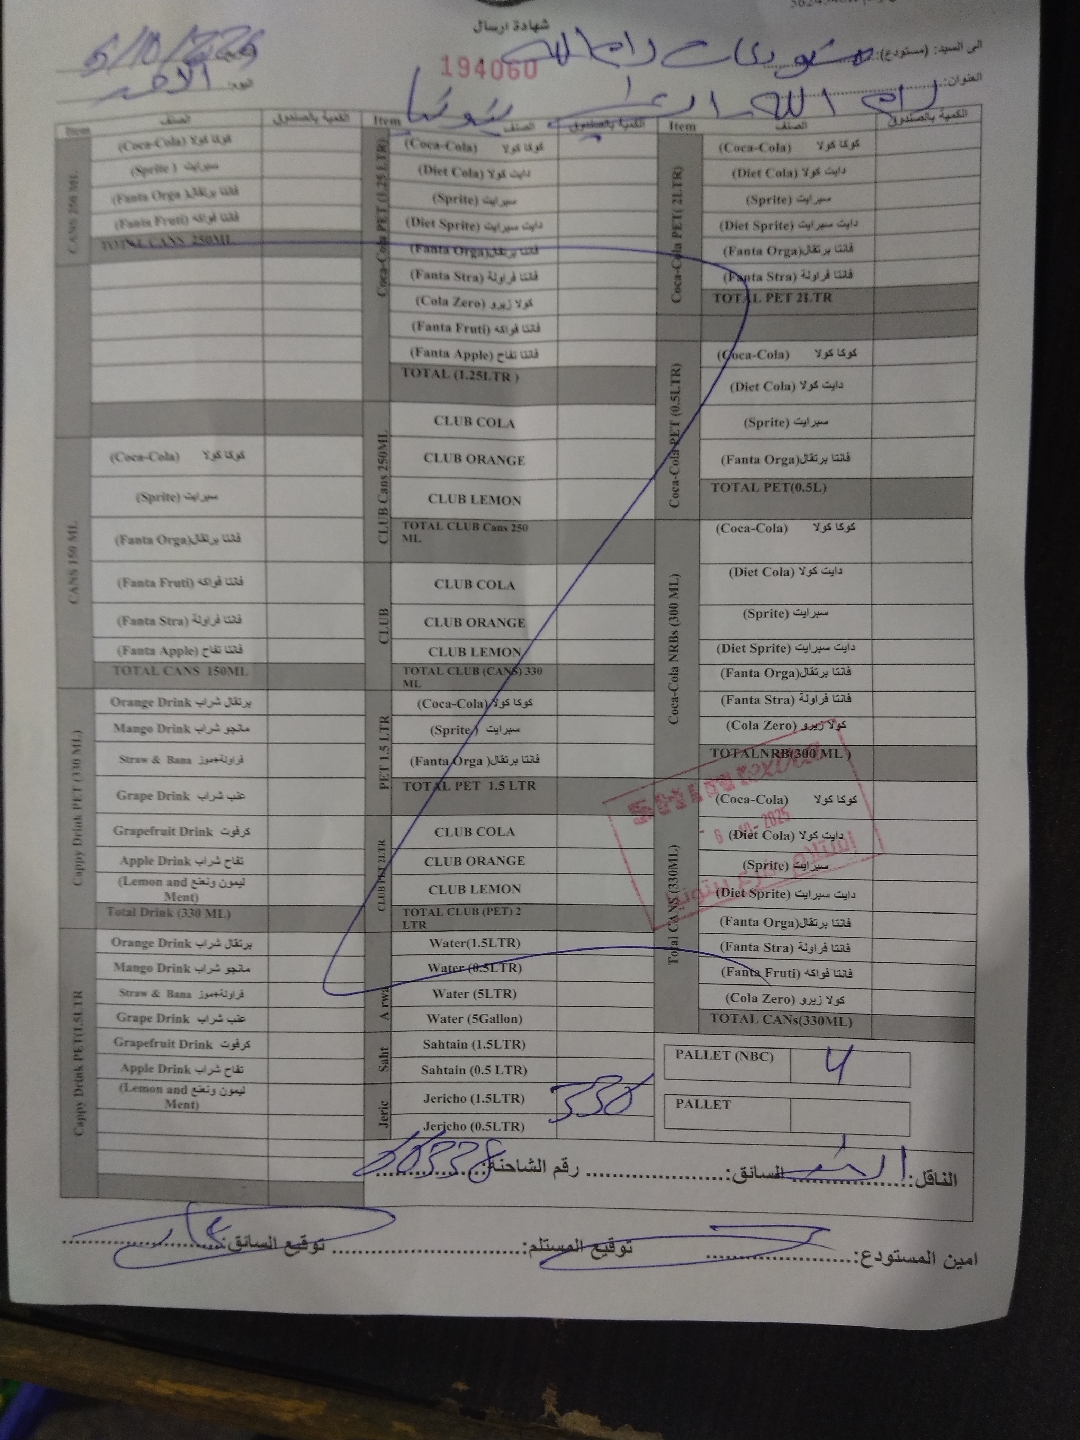 شهادة ارسال
194060
الى السيد: (مستودع): مستودعات رام الله
العنوان: رام الله
التاريخ: 6/10/2025
اليوم:
Item الصنف الكمية بالصندوق
CANS 250 ML
(Coca-Cola) كوكا كولا
(Sprite) سبرايت
(Fanta Orga) فانتا برتقال
(Fanta Fruti) فانتا فواكه
TOTAL CANS 250ML
CANS 150 ML
(Coca-Cola) كوكا كولا
(Sprite) سبرايت
(Fanta Orga) فانتا برتقال
(Fanta Fruti) فانتا فواكه
(Fanta Stra) فانتا فراولة
(Fanta Apple) فانتا تفاح
TOTAL CANS 150ML
Cappy Drink PET (330 ML)
Orange Drink برتقال شراب
Mango Drink مانجو شراب
Straw & Bana فراولة+موز
Grape Drink عنب شراب
Grapefruit Drink كرفوت
Apple Drink تفاح شراب
(Lemon and ليمون ونعنع
Ment)
Total Drink (330 ML)
Cappy Drink PET(1.5LTR
Orange Drink برتقال شراب
Mango Drink مانجو شراب
Straw & Bana فراولة+موز
Grape Drink عنب شراب
Grapefruit Drink كرفوت
Apple Drink تفاح شراب
(Lemon and ليمون ونعنع
Ment)
Item الصنف الكمية بالصندوق
Coca-Cola PET (1.25 LTR)
(Coca-Cola) كوكا كولا
(Diet Cola) دايت كولا
(Sprite) سبرايت
(Diet Sprite) دايت سبرايت
(Fanta Orga) فانتا برتقال
(Fanta Stra) فانتا فراولة
(Cola Zero) كولا زيرو
(Fanta Fruti) فانتا فواكه
(Fanta Apple) فانتا تفاح
TOTAL (1.25LTR )
CLUB Cans 250ML
CLUB COLA
CLUB ORANGE
CLUB LEMON
TOTAL CLUB Cans 250
ML
CLUB
CLUB COLA
CLUB ORANGE
CLUB LEMON
TOTAL CLUB (CANS) 330
ML
PET 1.5 LTR
(Coca-Cola) كوكا كولا
(Sprite) سبرايت
(Fanta Orga) فانتا برتقال
TOTAL PET 1.5 LTR
CLUB PET 2LTR
CLUB COLA
CLUB ORANGE
CLUB LEMON
TOTAL CLUB (PET) 2
LTR
Arwa
Water(1.5LTR)
Water (0.5LTR)
Water (5LTR)
Water (5Gallon)
Saht
Sahtain (1.5LTR)
Sahtain (0.5 LTR)
Jeric
Jericho (1.5LTR) 330
Jericho (0.5LTR)
Item الصنف الكمية بالصندوق
Coca-Cola PET( 2LTR)
(Coca-Cola) كوكا كولا
(Diet Cola) دايت كولا
(Sprite) سبرايت
(Diet Sprite) دايت سبرايت
(Fanta Orga) فانتا برتقال
(Fanta Stra) فانتا فراولة
TOTAL PET 2LTR
Coca-Cola PET (0.5LTR)
(Coca-Cola) كوكا كولا
(Diet Cola) دايت كولا
(Sprite) سبرايت
(Fanta Orga) فانتا برتقال
TOTAL PET(0.5L)
Coca-Cola NRBs (300 ML)
(Coca-Cola) كوكا كولا
(Diet Cola) دايت كولا
(Sprite) سبرايت
(Diet Sprite) دايت سبرايت
(Fanta Orga) فانتا برتقال
(Fanta Stra) فانتا فراولة
(Cola Zero) كولا زيرو
TOTALNRB(300 ML )
Total CANS (330ML)
(Coca-Cola) كوكا كولا
(Diet Cola) دايت كولا
(Sprite) سبرايت
(Diet Sprite) دايت سبرايت
(Fanta Orga) فانتا برتقال
(Fanta Stra) فانتا فراولة
(Fanta Fruti) فانتا فواكه
(Cola Zero) كولا زيرو
TOTAL CANs(330ML)
- 6 -10- 2025
PALLET (NBC) 4
PALLET
الناقل: السائق: رقم الشاحنة:
امين المستودع: توقيع المستلم: توقيع السائق: